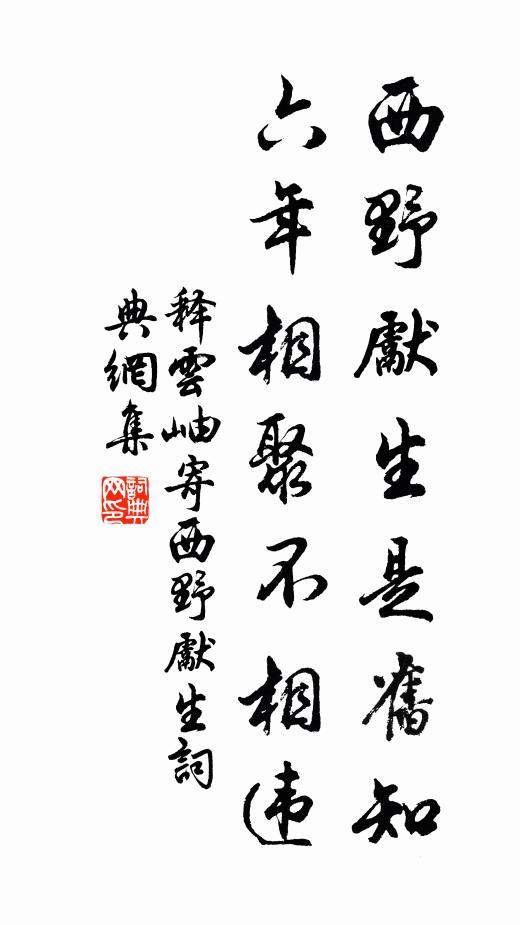 西野獻生是舊知
六年相聚不相违
释雲岫寄西野獻生詞
典網集
詞典网印